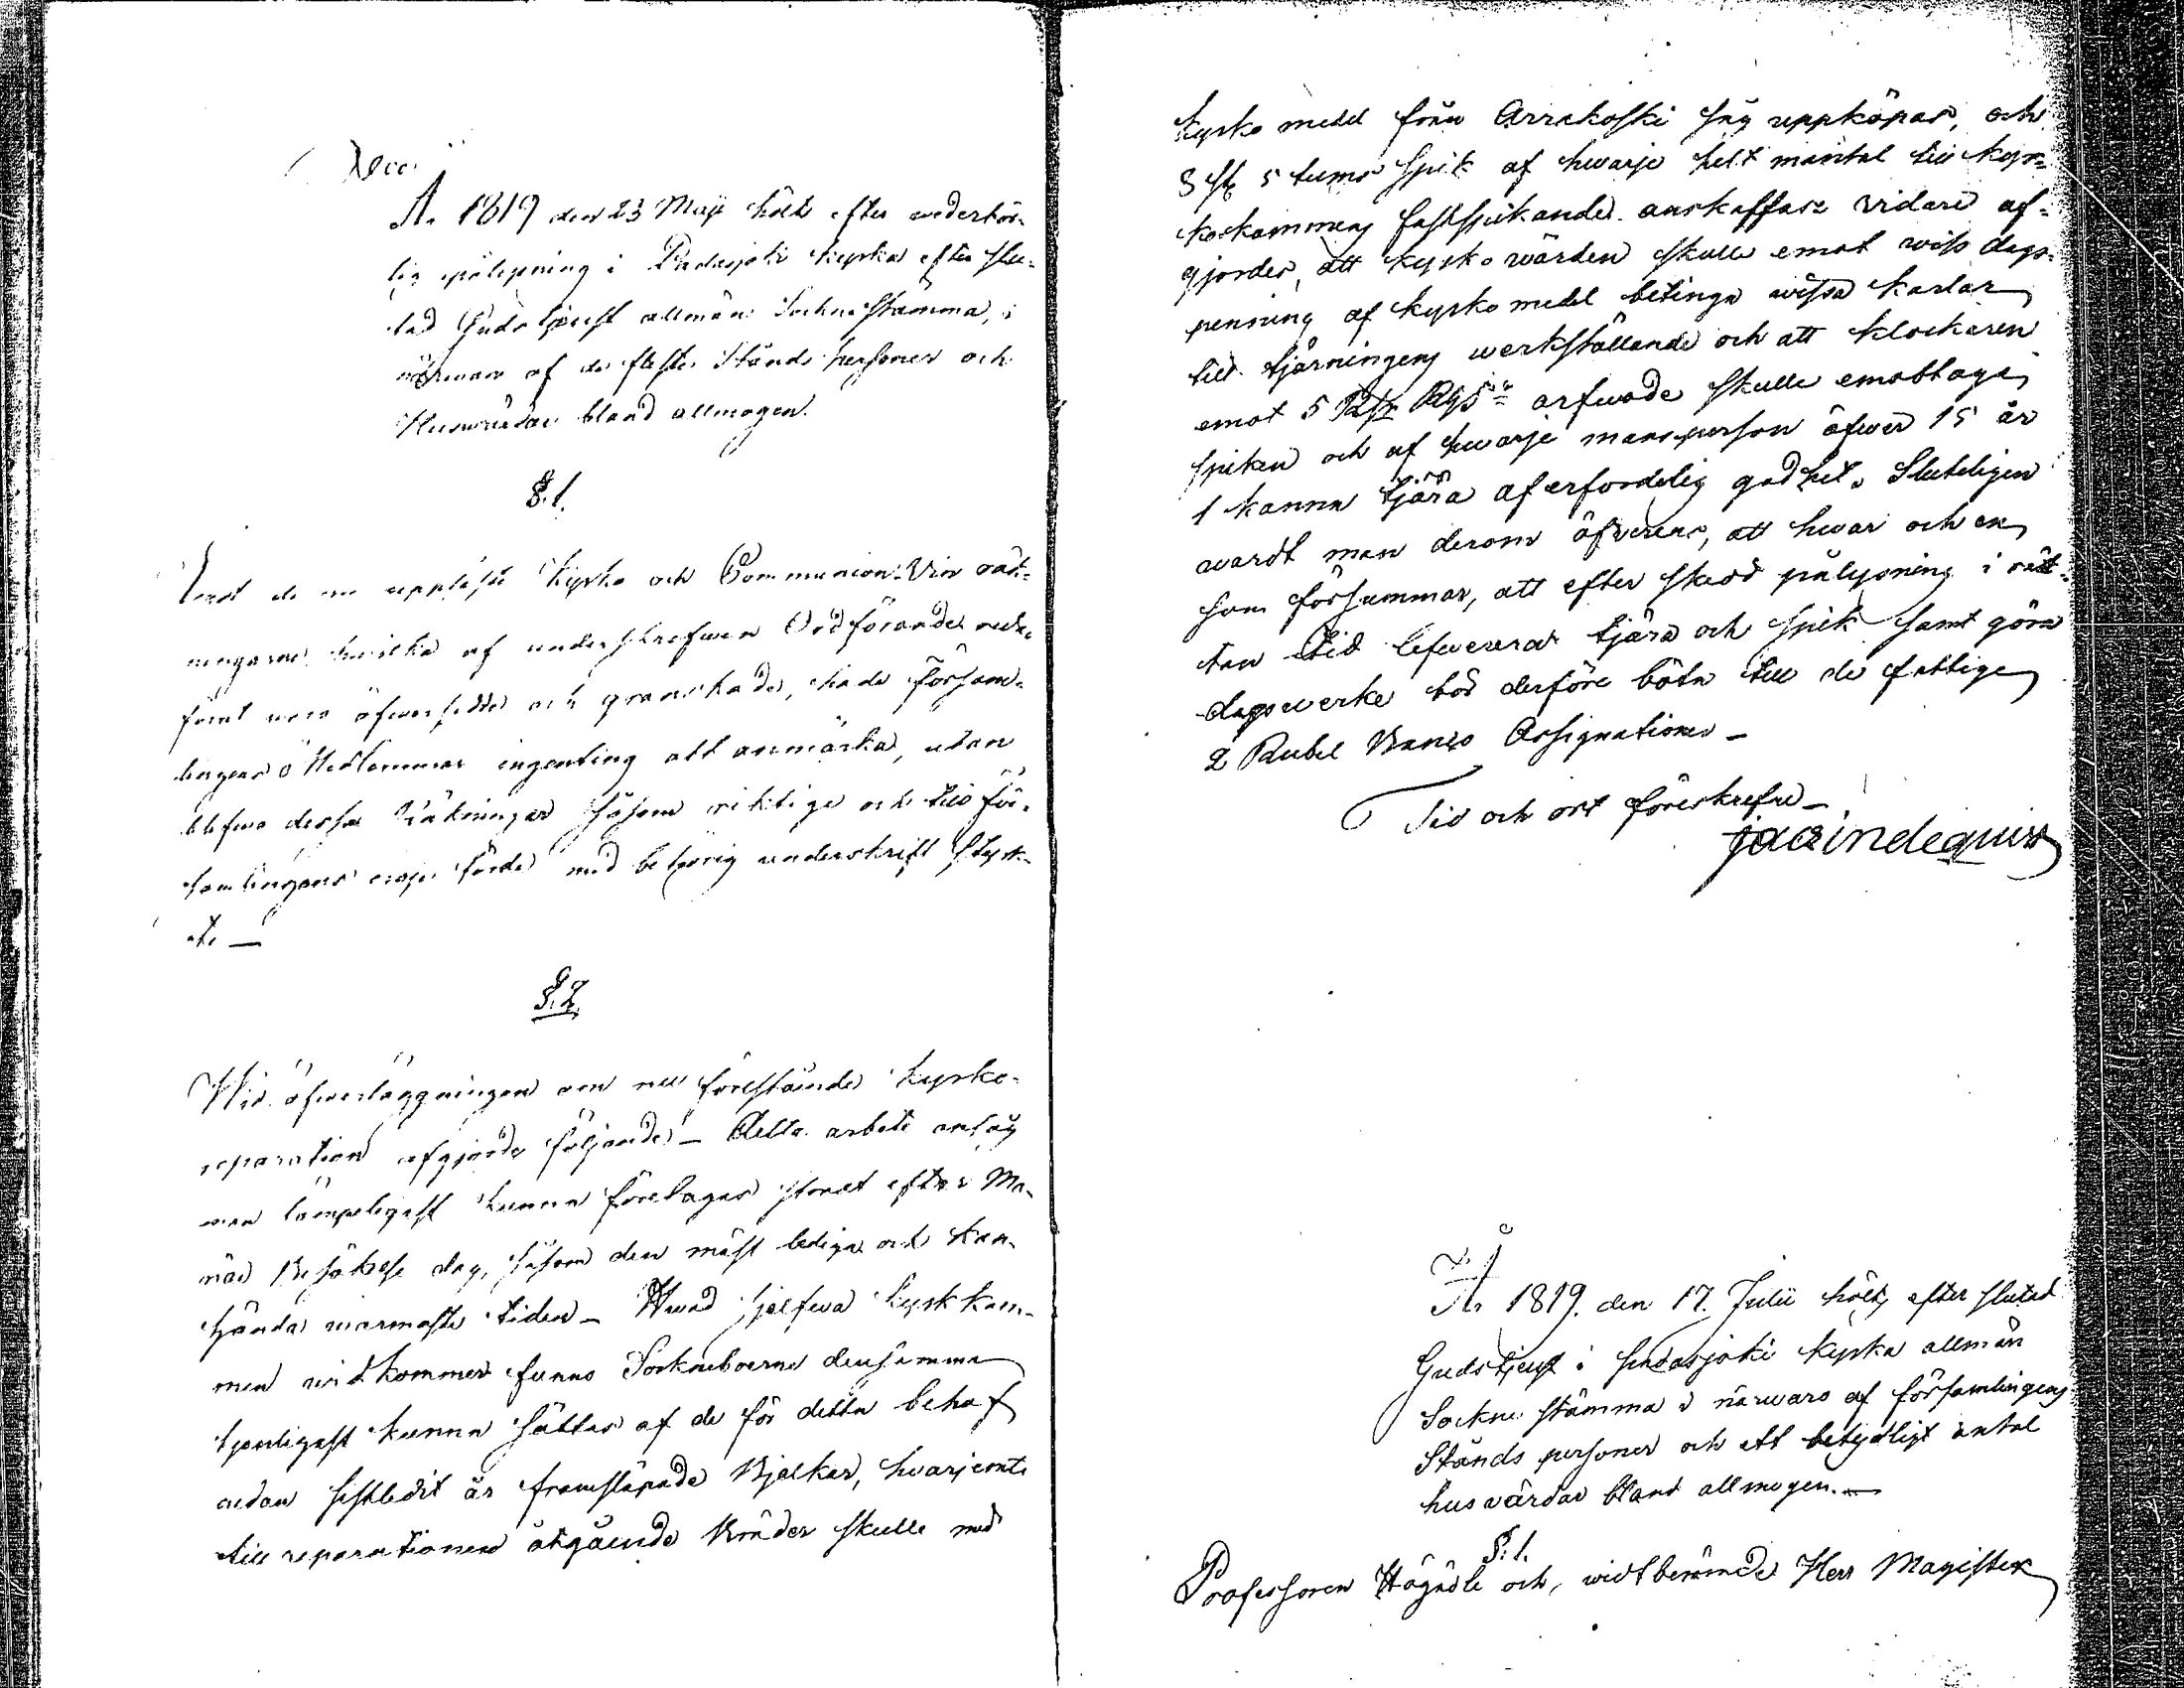 A. 1819 den 23 Maji hölts efter wederbör-
lig pålysning i Padasjoki kyrka efter slu-
tad Gudstjenst allmän Sockne Stämma, i
närwaro af de fleste Stånds Personer och
Huswärdar bland allmogen.
§. 1.
emot de nu upplästa Kyrko och Communion-Vin räk-
ningarne, hwilka af underskrefwen Ordförande
förut woro öfwersedde och granskade, hade försam-
lingens Medlemmar ingenting att anmärka, utan
blefwo dessa Räkningar såsom riktige och till för-
samlingens förde med behörig underskrift styrk-
te —
§. 2.
Wid öfwerläggningen om nu förestående kyrko-
reparation afgjordes följande — Detta arbete ansåg
man lämpeligast kunna företagas straxt efter Ma-
riæ Besökelse dag, såsom den mäst lediga och kan-
hända warmaste tiden — Hwad sjelfwa kyrkkam-
men widkommer funno Socknboerne densamma
tjenligast kunna sättas af de för detta behof
redan sistledit år framsläpade Bjelkar, hwarjemte
till reparationen åtgående Bräder skulle med
kyrko medel från Arrakoski såg uppköpas, och
3 st 5 tums spik af hwarje helt mantal till kyr-
kokammens fastspikande anskaffas. Vidare af-
gjordes, att kyrko wärden skulle emot wiss dags-
penning af kyrko medel betinga wissa karlar
till tjärningens werkställande och att klockaren
emot 5 Rub arfwode skulle emottaga
spiken och af hwarje mansperson öfwer 15 år
1 kanna tjära af erforderlig godhet. Sluteligen
wardt man derom öfwerens, att hwar och en
som försummar, att efter skedd pålysning i rät-
tan tid lefwerera tjära och spik samt göra
dagswerke bör derföre böta till de fattiga
2 Rubel Banco Assignationer —
Tid och ort föreskrefne —
A. 1819. den 17. Julii hölts efter slutad
Gudstjenst i Padasjoki kyrka allmän
Sockne stämma i närwaro af församlingens
Stånds personer och ett betydligt antal
huswärdar bland allmogen. —
§. 1.
Professoren Högädle och, widtberömde Herr Magister